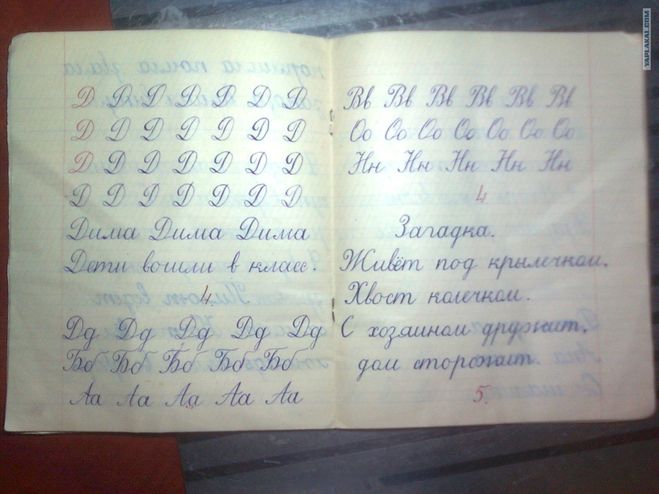 Д Д Д Д Д Д Д
Д Д Д Д Д Д Д
Д Д Д Д Д Д Д
Д Д Д Д Д Д Д
Дима Дима Дима
Дети вошли в класс.
4
Дд Дд Дд Дд Дд
Бб Бб Бб Бб Бб
Аа Аа Аа Аа Аа
Вв Вв Вв Вв Вв Вв
Оо Оо Оо Оо Оо Оо
Нн Нн Нн Нн Нн
4
Загадка.
Живёт под крылечком.
Хвост колечком.
С хозяином дружит,
дом сторожит.
5.
YAPLAKAL.COM